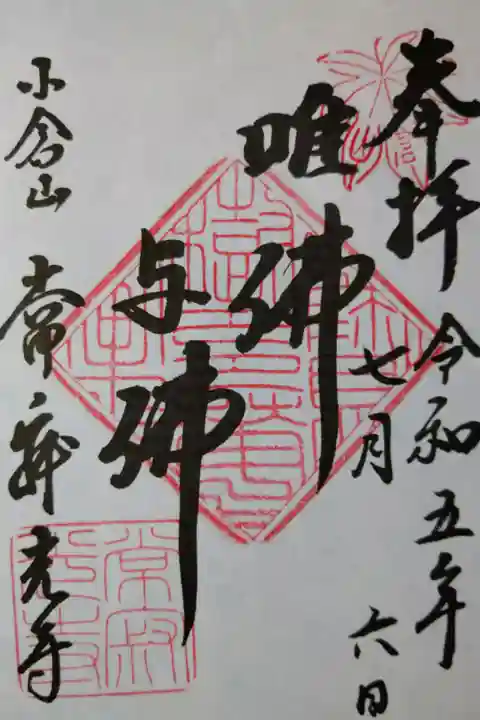 奉拝
令和五年
七月
六日
唯佛
与佛
小倉山
常寂光寺
常寂光寺